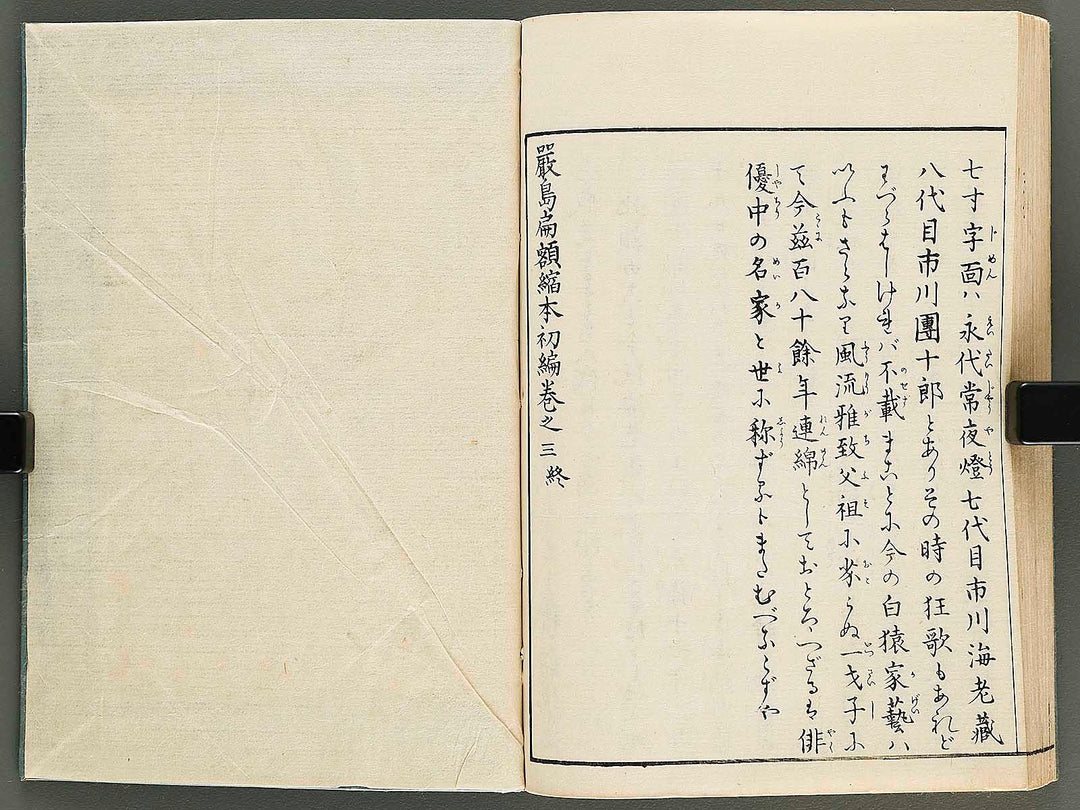 七寸字面ハ永代常夜燈七代目市川海老蔵
八代目市川團十郎とありその時の狂歌もあれど
わづらはしければ不載まことに今の白猿家藝ハ
いふもさらなり風流雅致父祖に劣らぬ一才子に
て今茲百八十餘年連綿としておとろへざるは俳
優中の名家と世に称ずるトまたむべならずや
嚴島扁額縮本初編巻之三終